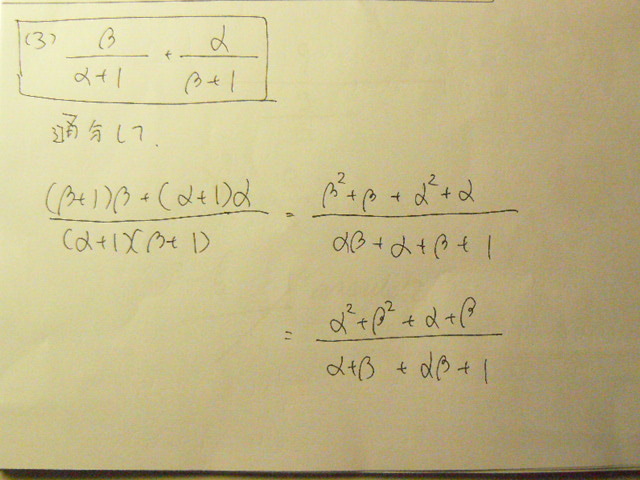 (3) β/(α+1) + α/(β+1)
通分して.
((β+1)β+(α+1)α)/((α+1)(β+1)) = (β²+β+α²+α)/(αβ+α+β+1)
= (α²+β²+α+β)/(α+β+αβ+1)